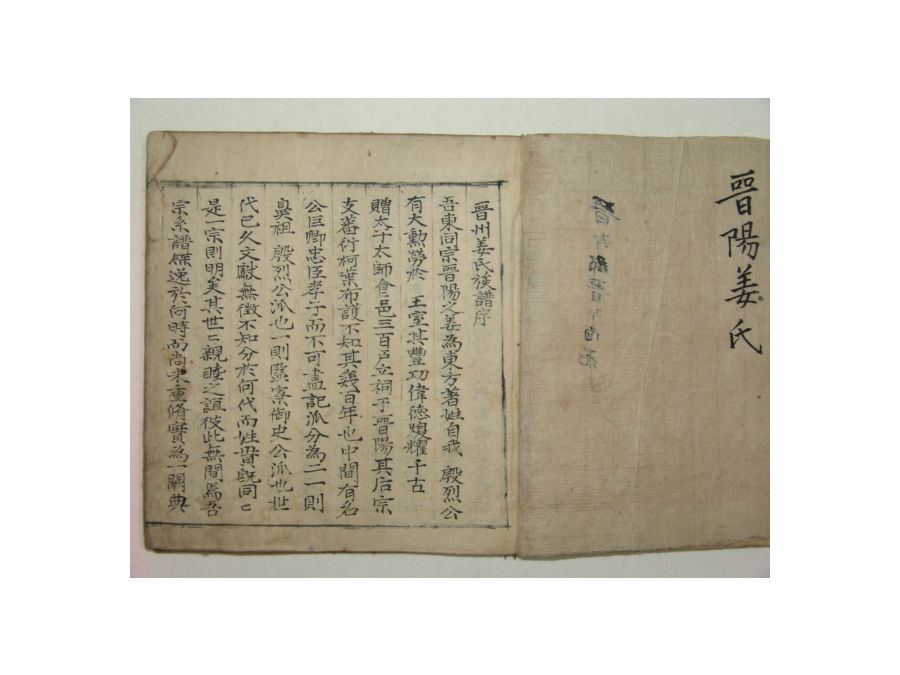 晉陽姜氏
晉州姜氏族譜序
吾東同宗晉陽之姜為東方著姓自我 殷烈公
有大勳勞於 王室其豐功偉德煥耀千古
贈太子太師食邑三百戶立祠于晉陽其后宗
支蕃衍柯葉布護不知其幾百年也中間有名
公巨卿忠臣孝子而不可盡記派分為二一則
鼻祖 殷烈公派也一則監察御史公派也世
代已久文獻無徵不知分於何代而姓貫旣同
是一宗則明矣其世世親睦之誼彼此無間焉吾
宗系譜牒逸於何時而尙未重脩實為一闕典